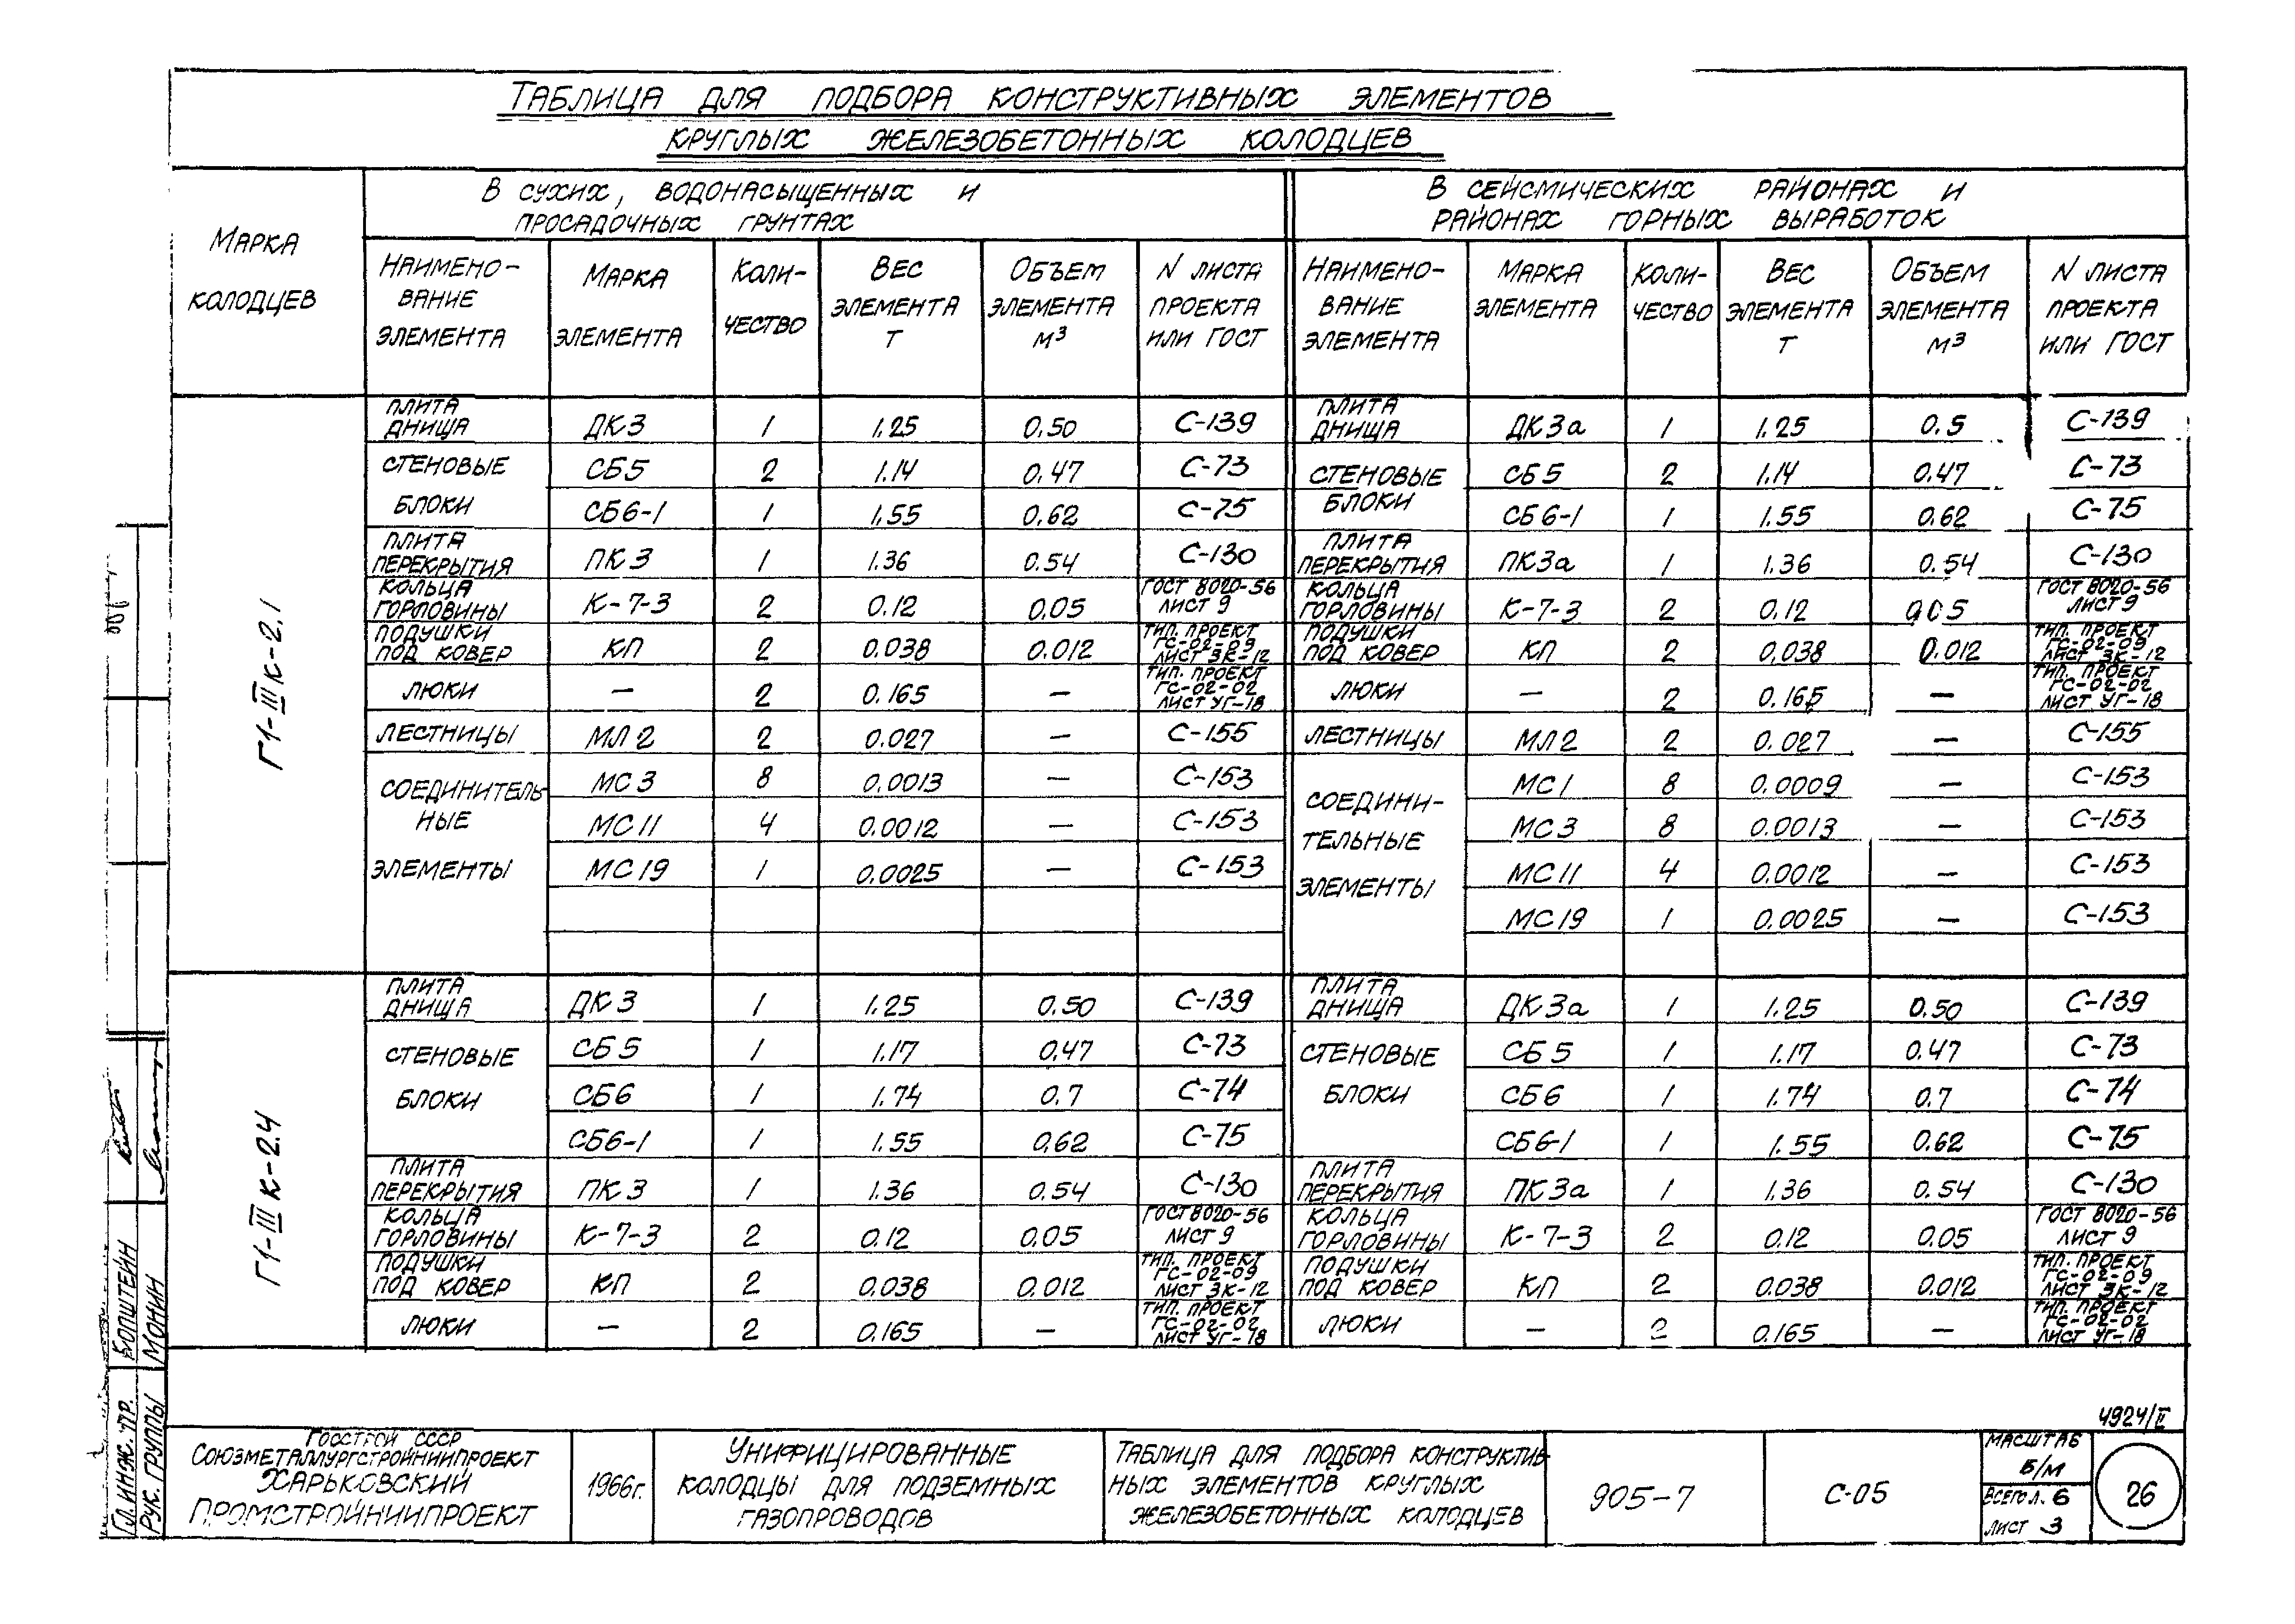 ТАБЛИЦА ДЛЯ ПОДБОРА КОНСТРУКТИВНЫХ ЭЛЕМЕНТОВ
КРУГЛЫХ ЖЕЛЕЗОБЕТОННЫХ КОЛОДЦЕВ
МАРКА КОЛОДЦЕВ
В СУХИХ, ВОДОНАСЫЩЕННЫХ И
ПРОСАДОЧНЫХ ГРУНТАХ
В СЕЙСМИЧЕСКИХ РАЙОНАХ И
РАЙОНАХ ГОРНЫХ ВЫРАБОТОК
НАИМЕНО-ВАНИЕ ЭЛЕМЕНТА МАРКА ЭЛЕМЕНТА КОЛИ-ЧЕСТВО ВЕС ЭЛЕМЕНТА Т ОБЪЕМ ЭЛЕМЕНТА М³ N ЛИСТА ПРОЕКТА ИЛИ ГОСТ НАИМЕНО-ВАНИЕ ЭЛЕМЕНТА МАРКА ЭЛЕМЕНТА КОЛИ-ЧЕСТВО ВЕС ЭЛЕМЕНТА Т ОБЪЕМ ЭЛЕМЕНТА М³ N ЛИСТА ПРОЕКТА ИЛИ ГОСТ
Г1-III К-2.1
ПЛИТА ДНИЩА ДК3 1 1.25 0.50 С-139 ПЛИТА ДНИЩА ДК3а 1 1.25 0.5 С-139
СТЕНОВЫЕ БЛОКИ СБ5 2 1.14 0.47 С-73 СТЕНОВЫЕ БЛОКИ СБ5 2 1.14 0.47 С-73
СБ6-1 1 1.55 0.62 С-75 СБ6-1 1 1.55 0.62 С-75
ПЛИТА ПЕРЕКРЫТИЯ ПК3 1 1.36 0.54 С-130 ПЛИТА ПЕРЕКРЫТИЯ ПК3а 1 1.36 0.54 С-130
КОЛЬЦА ГОРЛОВИНЫ К-7-3 2 0.12 0.05 ГОСТ 8020-56 ЛИСТ 9 КОЛЬЦА ГОРЛОВИНЫ К-7-3 2 0.12 0.05 ГОСТ 8020-56 ЛИСТ 9
ПОДУШКИ ПОД КОВЕР КП 2 0.038 0.012 ТИП. ПРОЕКТ ГС-02-09 ЛИСТ ЗК-12 ПОДУШКИ ПОД КОВЕР КП 2 0.038 0.012 ТИП. ПРОЕКТ ГС-02-09 ЛИСТ ЗК-12
ЛЮКИ — 2 0.165 — ТИП. ПРОЕКТ ГС-02-02 ЛИСТ УГ-18 ЛЮКИ — 2 0.165 — ТИП. ПРОЕКТ ГС-02-02 ЛИСТ УГ-18
ЛЕСТНИЦЫ МЛ2 2 0.027 — С-155 ЛЕСТНИЦЫ МЛ2 2 0.027 — С-155
СОЕДИНИТЕЛЬ-НЫЕ ЭЛЕМЕНТЫ МС3 8 0.0013 — С-153 СОЕДИНИ-ТЕЛЬНЫЕ ЭЛЕМЕНТЫ МС1 8 0.0009 — С-153
МС11 4 0.0012 — С-153 МС3 8 0.0013 — С-153
МС19 1 0.0025 — С-153 МС11 4 0.0012 — С-153
МС19 1 0.0025 — С-153
Г1-III К-2.4
ПЛИТА ДНИЩА ДК3 1 1.25 0.50 С-139 ПЛИТА ДНИЩА ДК3а 1 1.25 0.50 С-139
СТЕНОВЫЕ БЛОКИ СБ5 1 1.17 0.47 С-73 СТЕНОВЫЕ БЛОКИ СБ5 1 1.17 0.47 С-73
СБ6 1 1.74 0.7 С-74 СБ6 1 1.74 0.7 С-74
СБ6-1 1 1.55 0.62 С-75 СБ6-1 1 1.55 0.62 С-75
ПЛИТА ПЕРЕКРЫТИЯ ПК3 1 1.36 0.54 С-130 ПЛИТА ПЕРЕКРЫТИЯ ПК3а 1 1.36 0.54 С-130
КОЛЬЦА ГОРЛОВИНЫ К-7-3 2 0.12 0.05 ГОСТ 8020-56 ЛИСТ 9 КОЛЬЦА ГОРЛОВИНЫ К-7-3 2 0.12 0.05 ГОСТ 8020-56 ЛИСТ 9
ПОДУШКИ ПОД КОВЕР КП 2 0.038 0.012 ТИП. ПРОЕКТ ГС-02-09 ЛИСТ ЗК-12 ПОДУШКИ ПОД КОВЕР КП 2 0.038 0.012 ТИП. ПРОЕКТ ГС-02-09 ЛИСТ ЗК-12
ЛЮКИ — 2 0.165 — ТИП. ПРОЕКТ ГС-02-02 ЛИСТ УГ-18 ЛЮКИ — 2 0.165 — ТИП. ПРОЕКТ ГС-02-02 ЛИСТ УГ-18
4924/II
ГЛ. ИНЖ. ПР. БОЛШТЕЙН
РУК. ГРУППЫ МОНИН
ГОССТРОЙ СССР
СОЮЗМЕТАЛЛУРГСТРОЙНИИПРОЕКТ
ХАРЬКОВСКИЙ
ПРОМСТРОЙНИИПРОЕКТ
1966г.
УНИФИЦИРОВАННЫЕ
КОЛОДЦЫ ДЛЯ ПОДЗЕМНЫХ
ГАЗОПРОВОДОВ
ТАБЛИЦА ДЛЯ ПОДБОРА КОНСТРУКТИВ-
НЫХ ЭЛЕМЕНТОВ КРУГЛЫХ
ЖЕЛЕЗОБЕТОННЫХ КОЛОДЦЕВ
905-7
С-05
МАСШТАБ
Б/М
ВСЕГО Л. 6
ЛИСТ 3
26